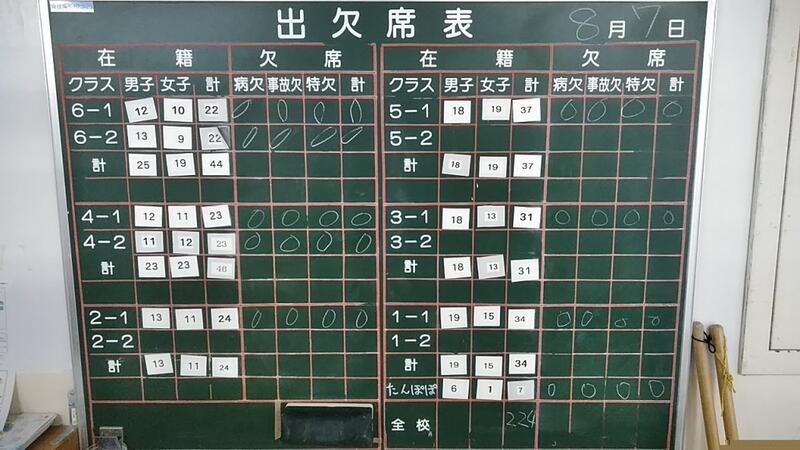 出欠席表 8月7日
在籍 欠席 在籍 欠席
クラス 男子 女子 計 病欠 事故欠 特欠 計 クラス 男子 女子 計 病欠 事故欠 特欠 計
6-1 12 10 22 0 0 0 0 5-1 18 19 37 0 0 0 0
6-2 13 9 22 0 0 0 0 5-2
計 25 19 44 計 18 19 37
4-1 12 11 23 0 0 0 0 3-1 18 13 31 0 0 0 0
4-2 11 12 23 0 0 0 0 3-2
計 23 23 46 計 18 13 31
2-1 13 11 24 0 0 0 0 1-1 19 15 34 0 0 0 0
2-2 1-2
計 13 11 24 計 19 15 34
たんぽぽ 6 1 7 0 0 0 0
全校 224